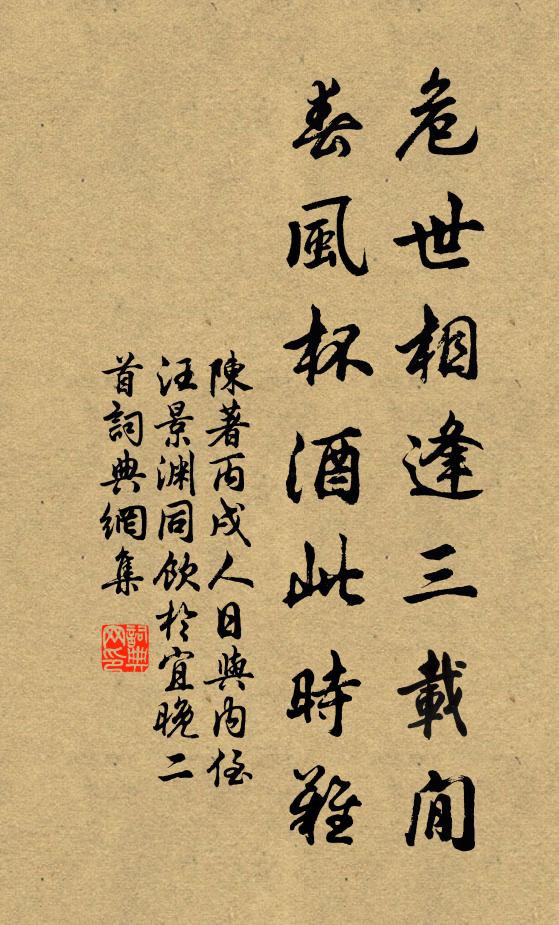 危世相逢三載間
春風杯酒此時難
陳著丙戌人日與內侄
汪景淵同飲於宜晚二
首詞典網集
詞典网印